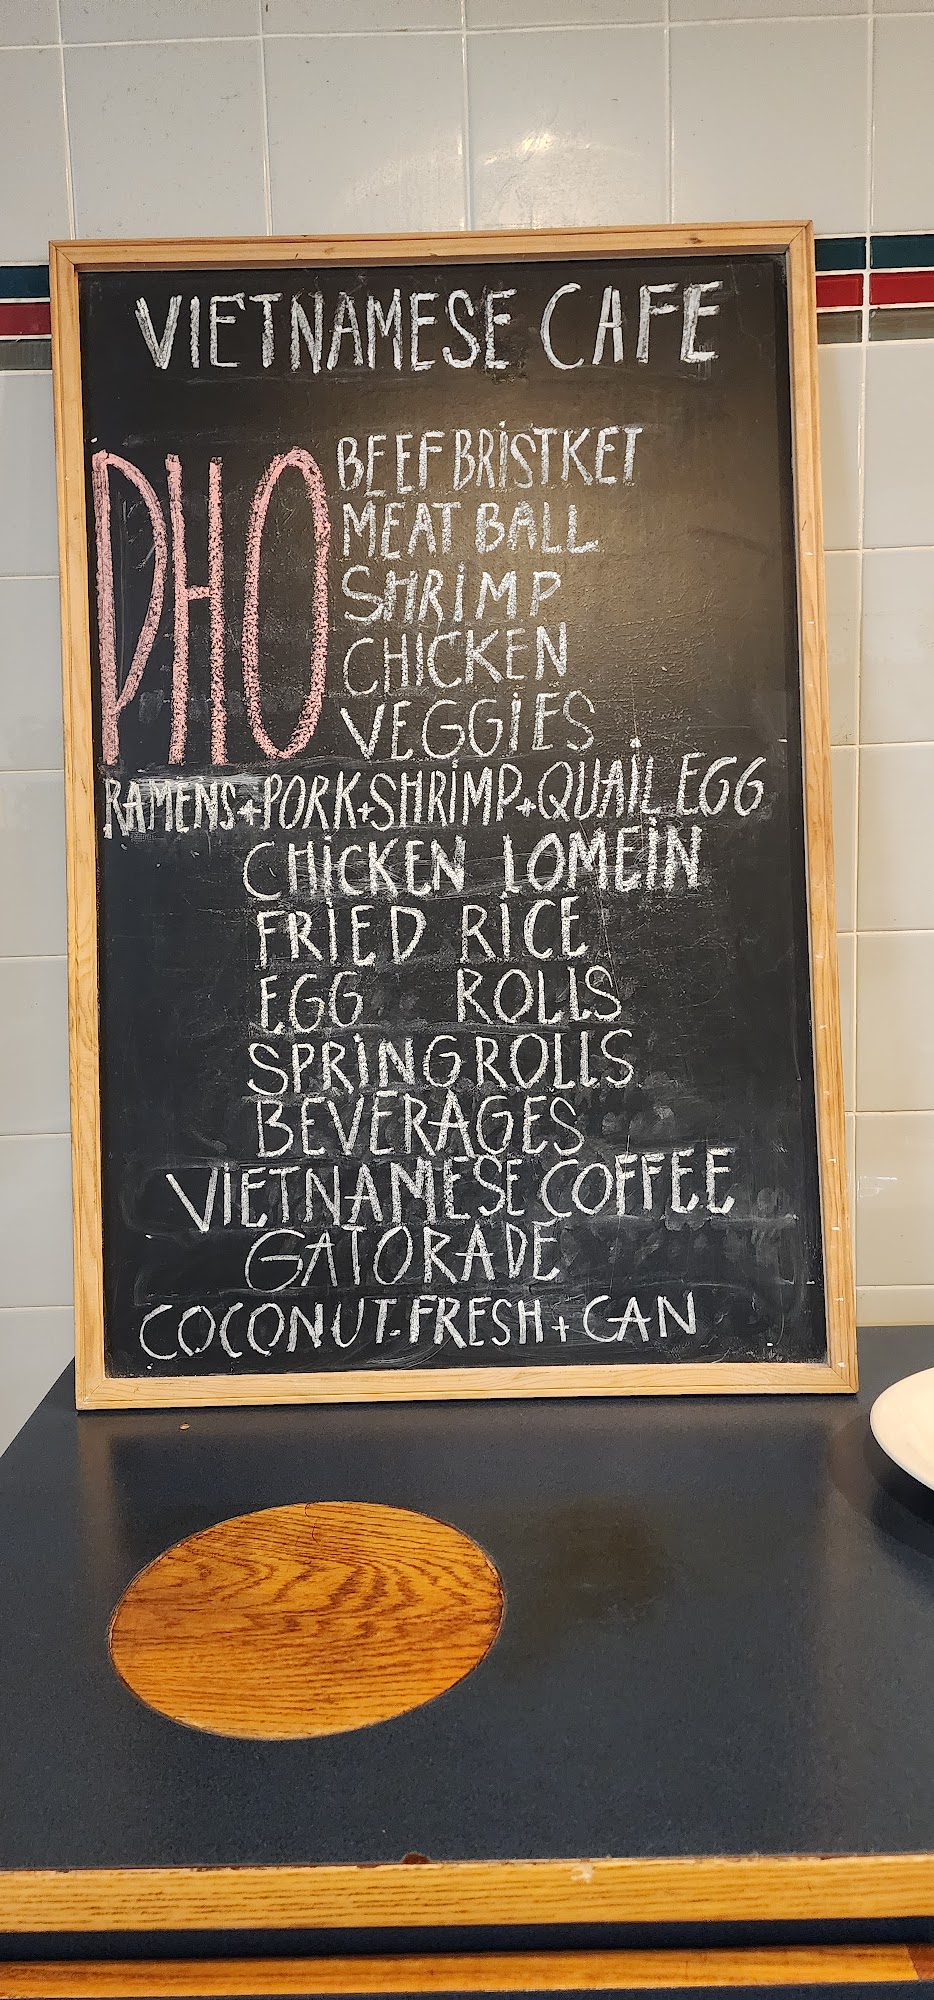 VIETNAMESE CAFE
PHO
BEEF BRISTKET
MEAT BALL
SHRIMP
CHICKEN
VEGGIES
RAMENS+PORK+SHRIMP+QUAIL EGG
CHICKEN LOMEIN
FRIED RICE
EGG ROLLS
SPRING ROLLS
BEVERAGES
VIETNAMESE COFFEE
GATORADE
COCONUT-FRESH+CAN